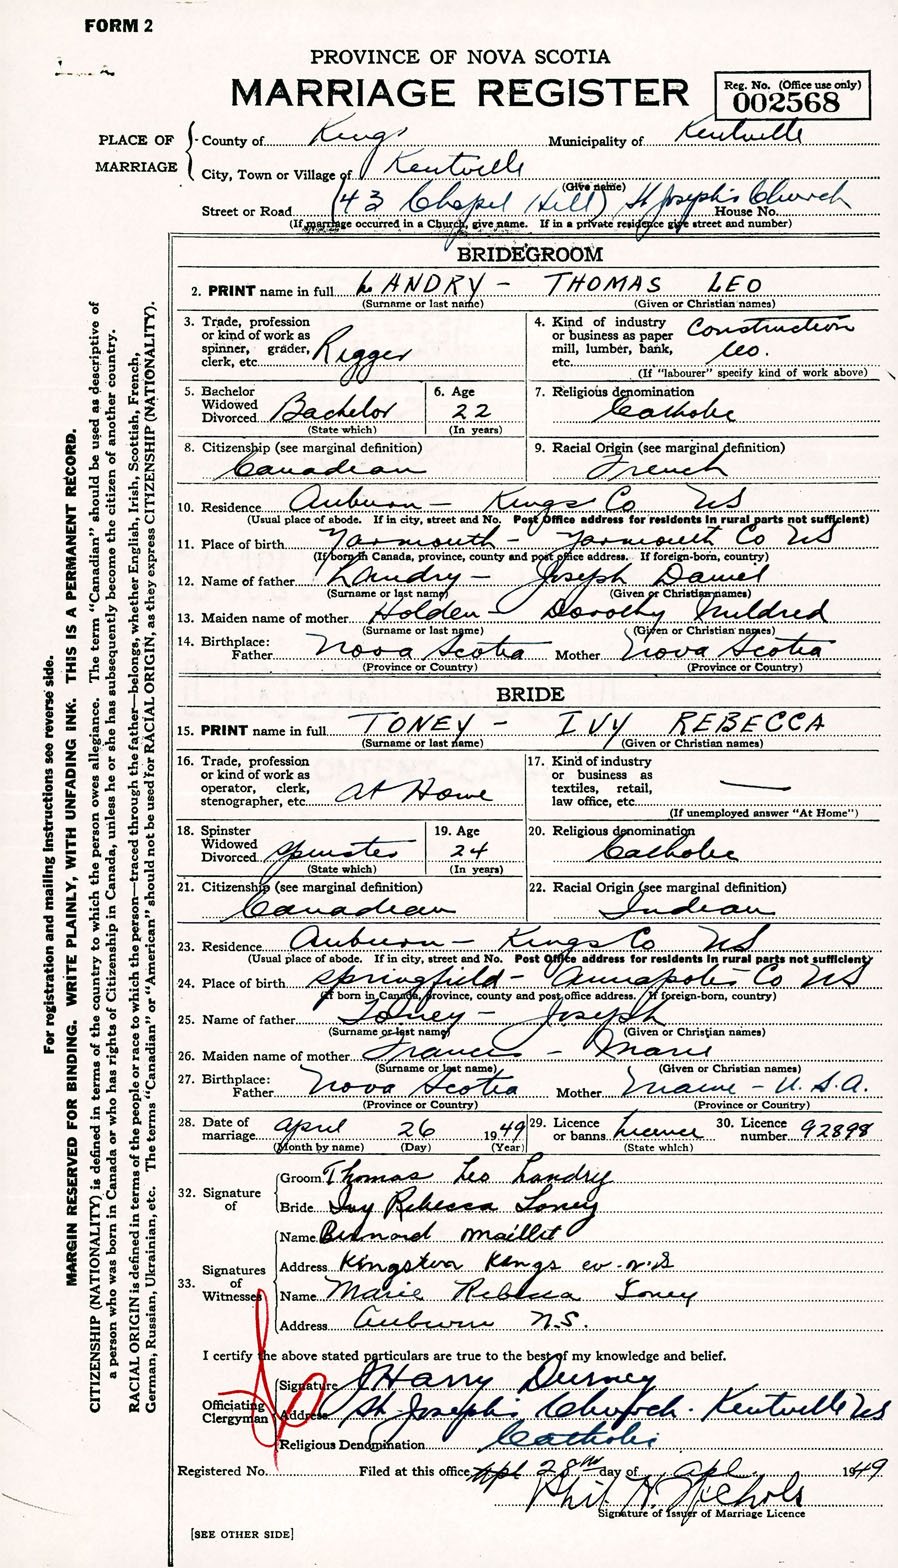 FORM 2
PROVINCE OF NOVA SCOTIA
MARRIAGE REGISTER
Reg. No. (Office use only)
002568
PLACE OF MARRIAGE
County of Kings Municipality of Kentville
City, Town or Village of Kentville
(Give name)
Street or Road (43 Chapel Hill) St Joseph's Church House No.
(If marriage occurred in a Church, give name. If in a private residence give street and number)
BRIDEGROOM
2. PRINT name in full LANDRY - THOMAS LEO
(Surname or last name) (Given or Christian names)
3. Trade, profession or kind of work as spinner, grader, clerk, etc. Rigger
4. Kind of industry or business as paper mill, lumber, bank, etc. Construction Co.
(If "labourer" specify kind of work above)
5. Bachelor Widowed Divorced Bachelor
(State which)
6. Age 22
(In years)
7. Religious denomination Catholic
8. Citizenship (see marginal definition) Canadian
9. Racial Origin (see marginal definition) French
10. Residence Auburn - Kings Co NS
(Usual place of abode. If in city, street and No. Post Office address for residents in rural parts not sufficient)
11. Place of birth Yarmouth - Yarmouth Co NS
(If born in Canada, province, county and post office address. If foreign-born, country)
12. Name of father Landry - Joseph Daniel
(Surname or last name) (Given or Christian names)
13. Maiden name of mother Holden - Dorothy Mildred
(Surname or last name) (Given or Christian names)
14. Birthplace: Father Nova Scotia Mother Nova Scotia
(Province or Country) (Province or Country)
BRIDE
15. PRINT name in full TONEY - IVY REBECCA
(Surname or last name) (Given or Christian names)
16. Trade, profession or kind of work as operator, clerk, stenographer, etc. At Home
17. Kind of industry or business as textiles, retail, law office, etc. —
(If unemployed answer "At Home")
18. Spinster Widowed Divorced Spinster
(State which)
19. Age 24
(In years)
20. Religious denomination Catholic
21. Citizenship (see marginal definition) Canadian
22. Racial Origin (see marginal definition) Indian
23. Residence Auburn - Kings Co NS
(Usual place of abode. If in city, street and No. Post Office address for residents in rural parts not sufficient)
24. Place of birth Springfield - Annapolis Co NS
(If born in Canada, province, county and post office address. If foreign-born, country)
25. Name of father Toney - Joseph
(Surname or last name) (Given or Christian names)
26. Maiden name of mother Francis - Marie
(Surname or last name) (Given or Christian names)
27. Birthplace: Father Nova Scotia Mother Maine - U.S.A.
(Province or Country) (Province or Country)
28. Date of marriage April 26 1949
(Month by name) (Day) (Year)
29. Licence or banns Licence
(State which)
30. Licence number 92898
32. Signature of
Groom Thomas Leo Landry
Bride Ivy Rebecca Toney
33. Signatures of Witnesses
Name Bernard Maillet
Address Kingston Kings co. n.s
Name Marie Rebecca Toney
Address Auburn N.S.
I certify the above stated particulars are true to the best of my knowledge and belief.
Officiating Clergyman
Signature J Harry Durney
Address St. Joseph's Church - Kentville NS
Religious Denomination Catholic
Registered No. Filed at this office 28th day of Apl. 1949
Phil H. Nichols
Signature of Issuer of Marriage Licence
[SEE OTHER SIDE]
For registration and mailing instructions see reverse side.
MARGIN RESERVED FOR BINDING. WRITE PLAINLY, WITH UNFADING INK. THIS IS A PERMANENT RECORD.
CITIZENSHIP (NATIONALITY) is defined in terms of the country to which the person owes allegiance. The term "Canadian" should be used as descriptive of
a person who was born in Canada or who has rights of Citizenship in Canada, unless he or she has subsequently become the citizen of another country.
RACIAL ORIGIN is defined in terms of the people or race to which the person—traced through the father—belongs, whether English, Irish, Scottish, French,
German, Russian, Ukrainian, etc. The terms "Canadian" or "American" should not be used for RACIAL ORIGIN, as they express CITIZENSHIP (NATIONALITY).